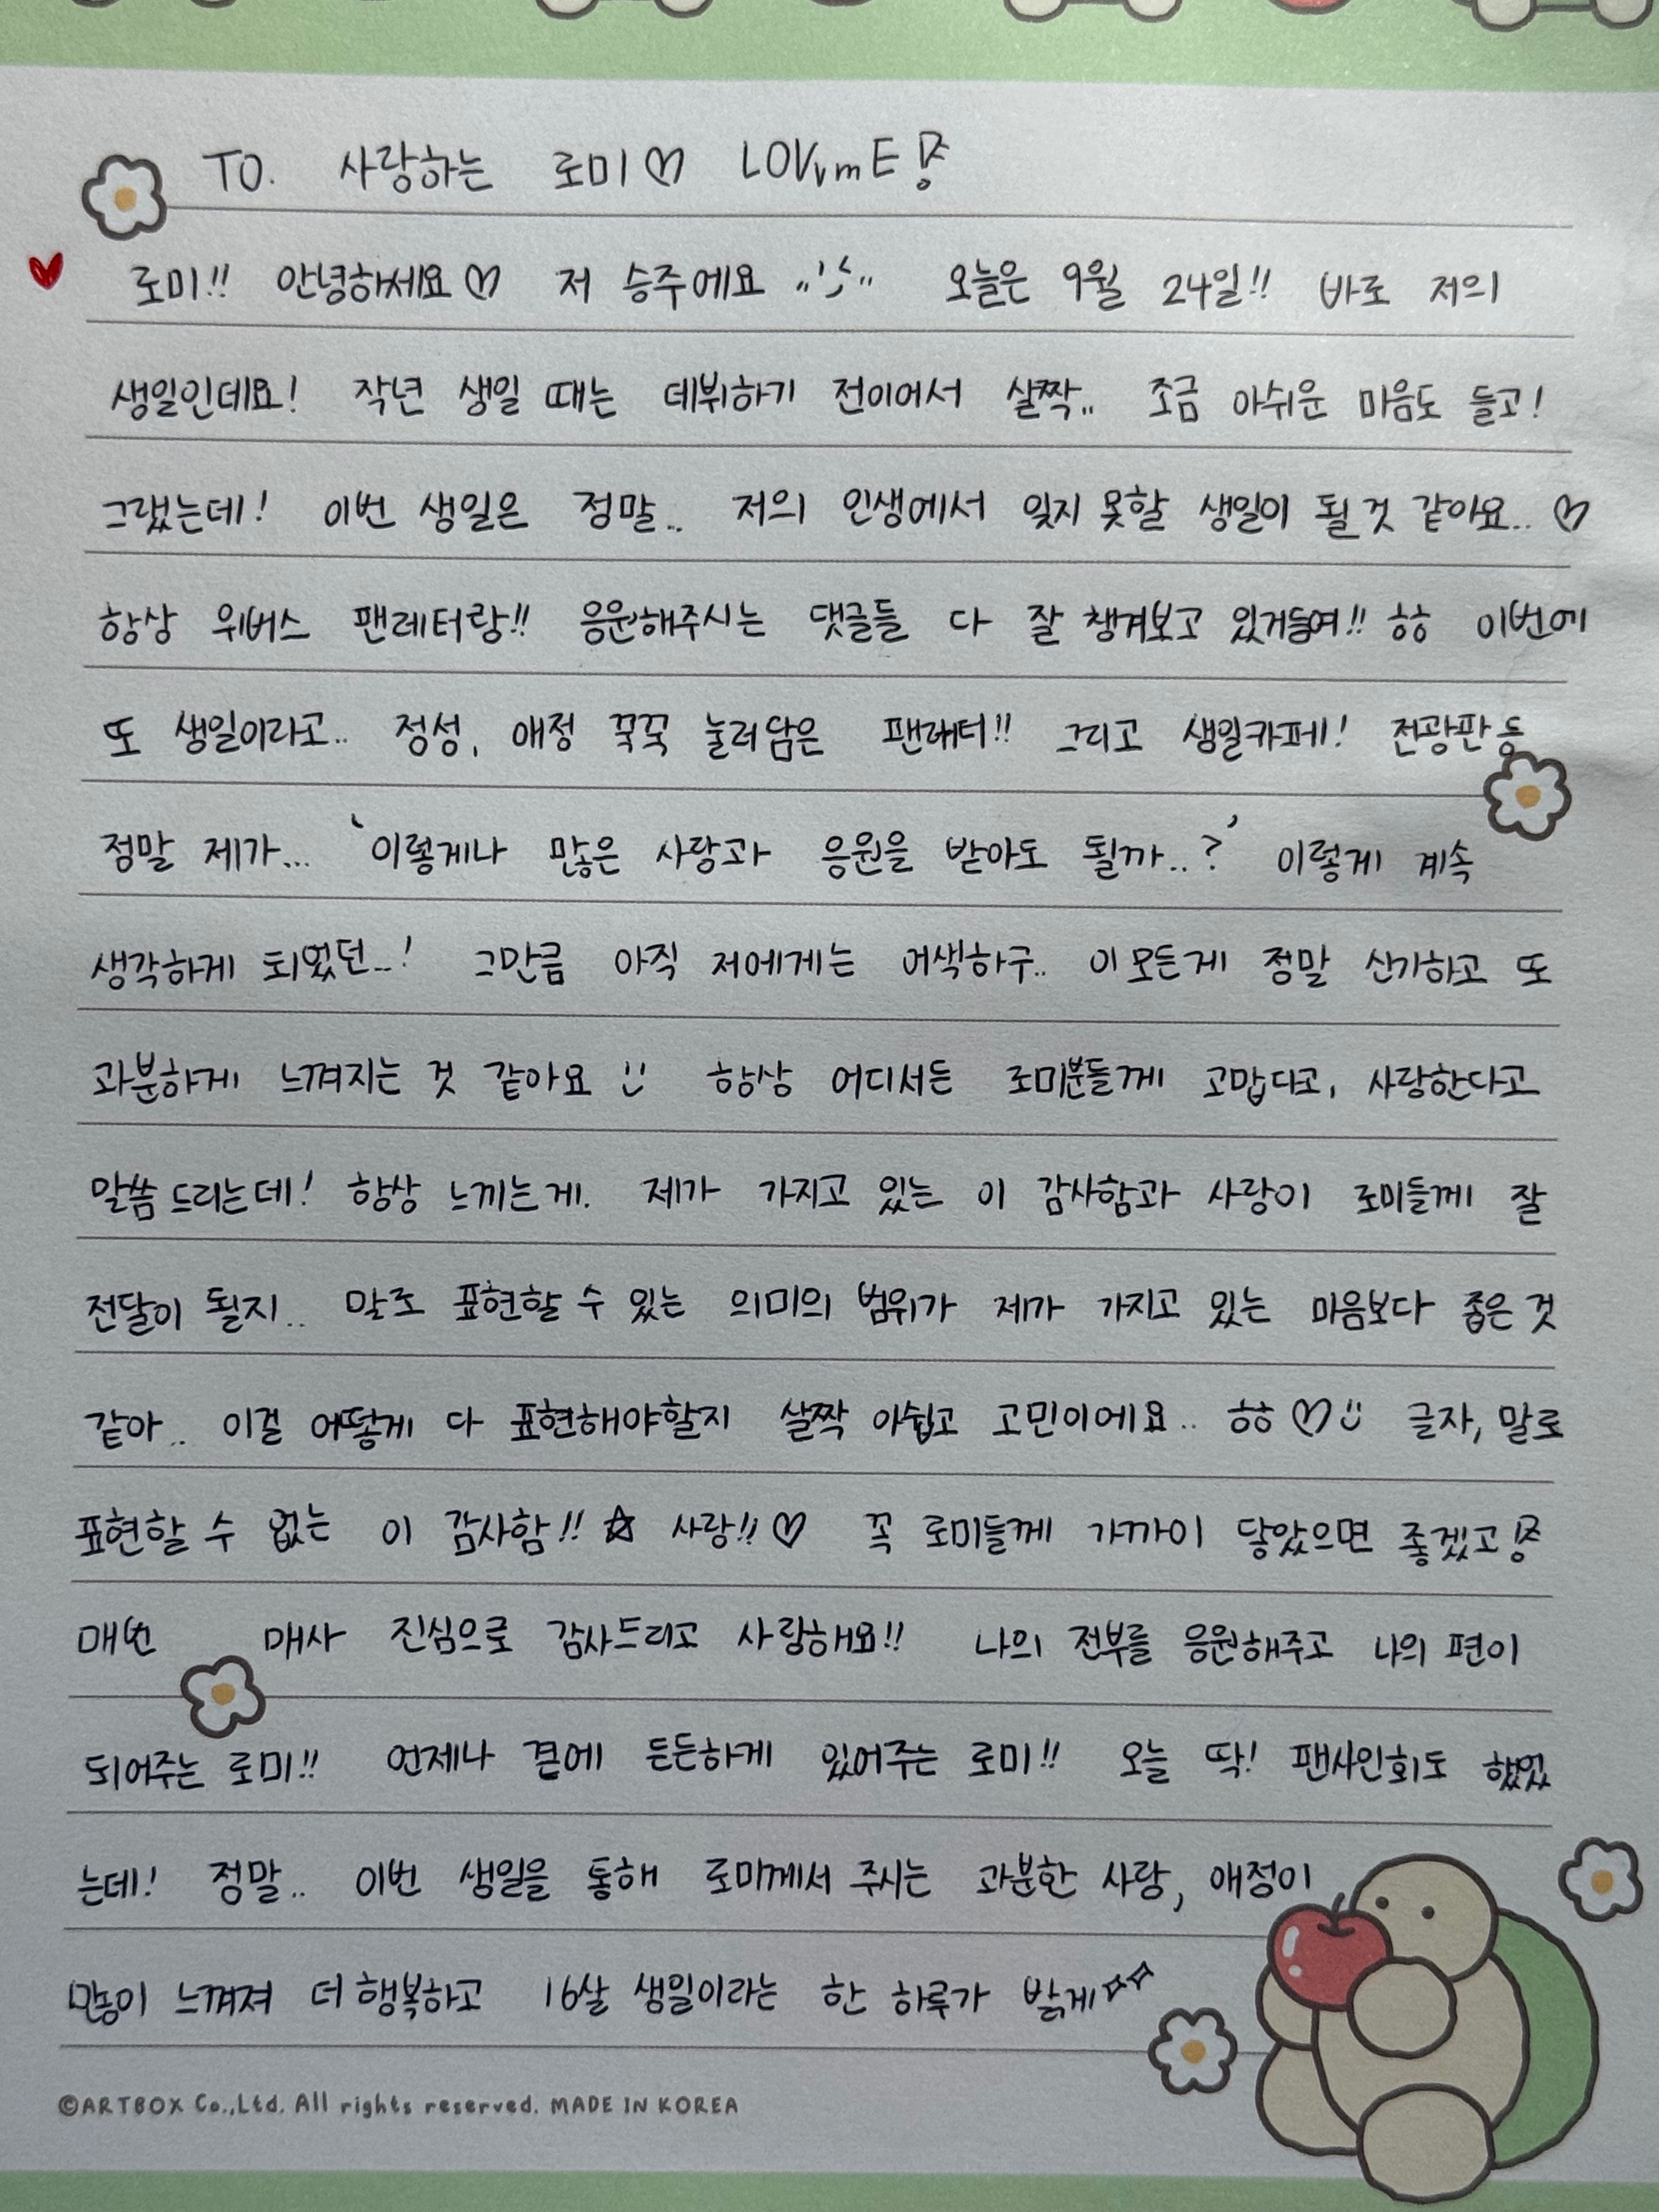 TO. 사랑하는 로미♡ LOVvmE!
로미!! 안녕하세요♡ 저 승주에요 오늘은 9월 24일!! 바로 저의
생일인데요! 작년 생일 때는 데뷔하기 전이어서 살짝.. 조금 아쉬운 마음도 들고!
그랬는데! 이번 생일은 정말.. 저의 인생에서 잊지 못할 생일이 될 것 같아요.. ♡
항상 위버스 팬레터랑!! 응원해주시는 댓글들 다 잘 챙겨보고 있거등여!! ㅎㅎ 이번에
또 생일이라고.. 정성, 애정 꾹꾹 눌러담은 팬레터!! 그리고 생일카페! 전광판 등
정말 제가... '이렇게나 많은 사랑과 응원을 받아도 될까..?' 이렇게 계속
생각하게 되었던...! 그만큼 아직 저에게는 어색하구.. 이 모든게 정말 신기하고 또
과분하게 느껴지는 것 같아요 :) 항상 어디서든 로미분들께 고맙다고, 사랑한다고
말씀 드리는데! 항상 느끼는게. 제가 가지고 있는 이 감사함과 사랑이 로미들께 잘
전달이 될지.. 말로 표현할 수 있는 의미의 범위가 제가 가지고 있는 마음보다 좁은 것
같아.. 이걸 어떻게 다 표현해야할지 살짝 아쉽고 고민이에요.. ㅎㅎ ♡:) 글자, 말로
표현할 수 없는 이 감사함!! ☆ 사랑!! ♡ 꼭 로미들께 가까이 닿았으면 좋겠고!
매번 매사 진심으로 감사드리고 사랑해요!! 나의 전부를 응원해주고 나의 편이
되어주는 로미!! 언제나 곁에 든든하게 있어주는 로미!! 오늘 딱! 팬사인회도 했었
는데! 정말.. 이번 생일을 통해 로미께서 주시는 과분한 사랑, 애정이
많이 느껴져 더 행복하고 16살 생일이라는 한 하루가 밝게✧✧
©ARTBOX Co.,Ltd. All rights reserved. MADE IN KOREA